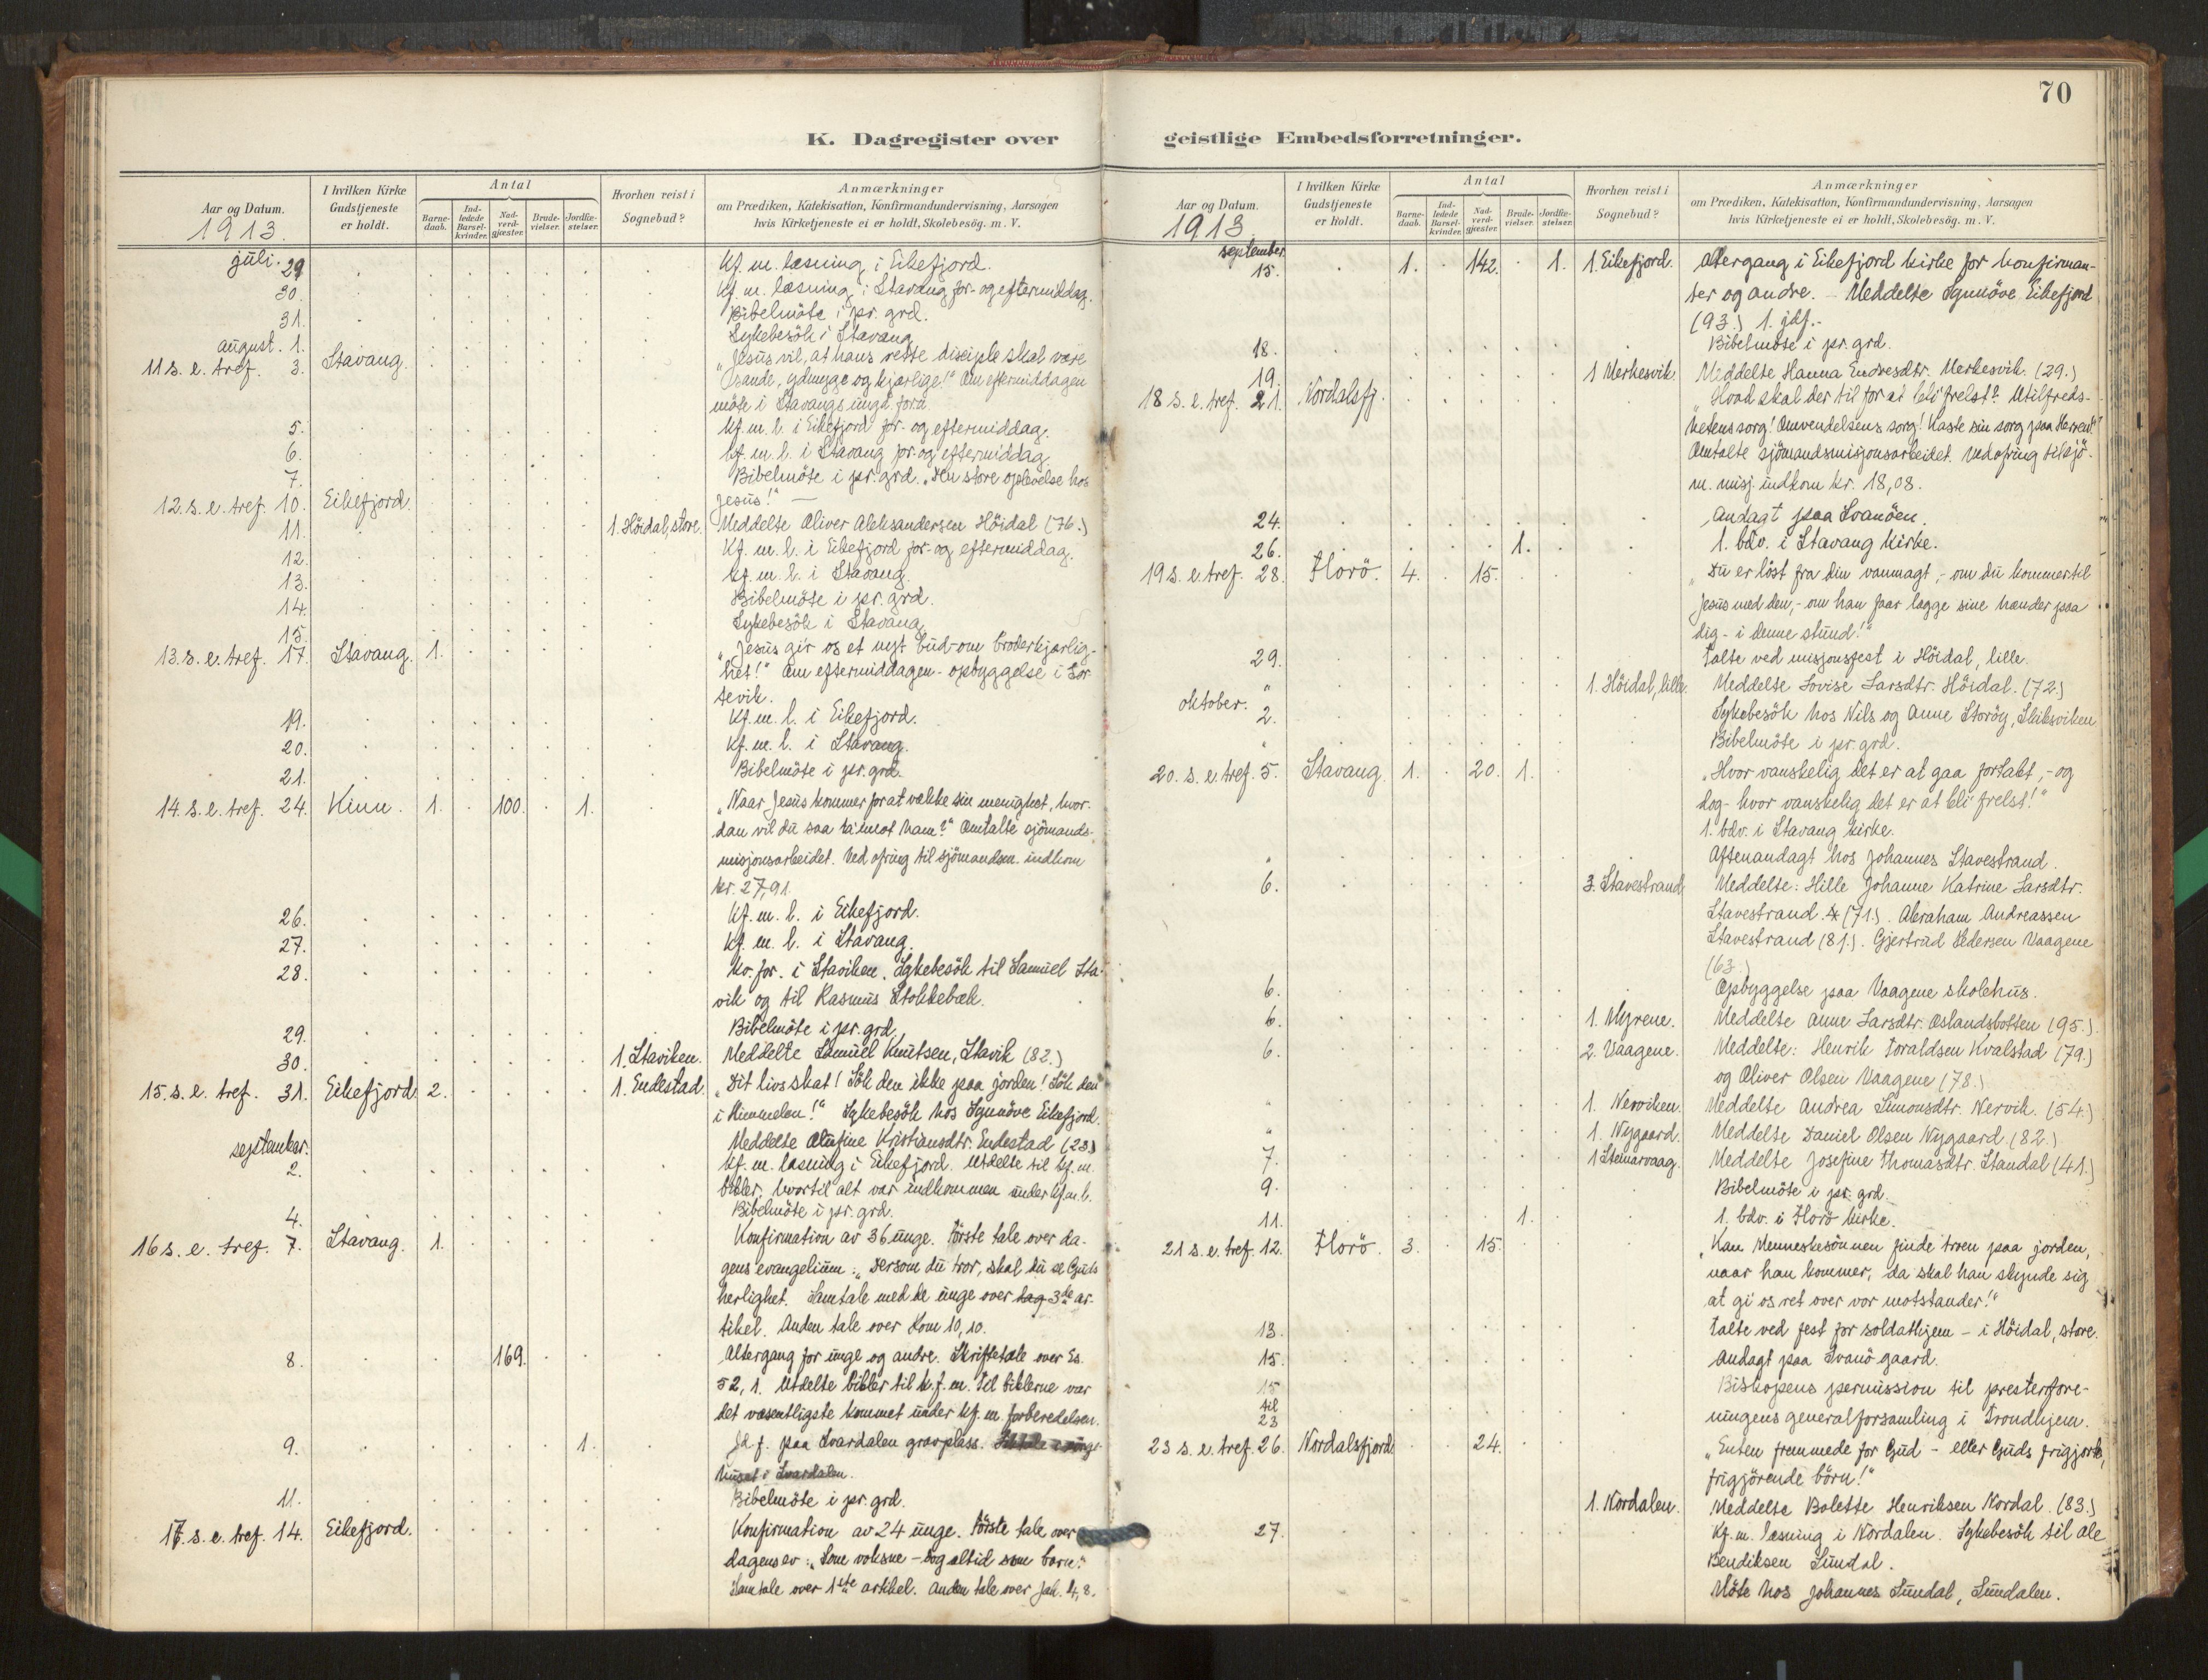 70
K. Dagregister over
Aar og Datum.
1913.
I hvilken Kirke Gudstjeneste er holdt.
Antal
Barnedaab.
Indledede Barselkvinder.
Nadverdgjæster.
Brudevielser.
Jordfæstelser.
Hvorhen reist i Sognebud?
Anmærkninger
om Prædiken, Katekisation, Konfirmandundervisning, Aarsagen
hvis Kirketjeneste ei er holdt, Skolebesøg. m. V.
juli. 29 Kf. m. læsning i Eikefjord.
30. Kf. m. læsning i Stavang for- og eftermiddag.
31. Bibelmöte i pr. grd.
august. 1. Sykebesök i Stavang
11 s. e. tref. 3. Stavang. „Jesus vil, at hans rette disciple skal være
sande, ydmyge og kjærlige!" Om eftermiddagen
möte i Stavangs ungd. foren.
5. Kf. m. l. i Eikefjord for- og eftermiddag.
6. Kf. m. l. i Stavang for- og eftermiddag.
7. Bibelmöte i pr. grd. „Den store oplevelse hos
12. s. e. tref. 10. Eikefjord. Jesus!" —
11. 1. Höidal, store. Meddelte Oliver Aleksandersen Höidal (76.)
12. Kf. m. l. i Eikefjord for- og eftermiddag.
13. Kf. m. l. i Stavang.
14. Bibelmöte i pr. grd.
15. Sykebesök i Stavang
13. s. e. tref. 17. Stavang. 1. „Jesus gir os et nyt bud - om broderkjærlig-
het!" Om eftermiddagen - opbyggelse i Tor-
tevik.
19. Kf. m. l. i Eikefjord.
20. Kf. m. l. i Stavang.
21. Bibelmöte i pr. grd.
14. s. e. tref. 24. Kinn. 1. 100. 1. „Naar Jesus kommer for at vække sin menighet, hvor-
dan vil du saa ta imot ham?" Omtalte sjömands-
misjonsarbeidet. Ved ofring til sjömandsm. indkom
kr. 27,91.
26. Kf. m. l. i Eikefjord.
27. Kf. m. l. i Stavang.
28. Kr. for. i Staviken. Sykebesök til Samuel Sta-
vik og til Rasmus Stokkebæk.
29. Bibelmöte i pr. grd.
30. 1. Staviken. Meddelte Samuel Knutsen, Stavik (82.)
15. s. e. tref. 31. Eikefjord. 2. 1. Endestad. „Dit livs skat! Sök den ikke paa jorden! Sök den
i Himmelen!" Sykebesök hos Synnöve Eikefjord.
Meddelte Olufine Kristiansdtr. Endestad (23.)
september. 2. Kf. m. læsning i Eikefjord. Utdelte til kf. m.
bibler, hvortil alt var indkommen under kf. m. l.
4. Bibelmöte i pr. grd.
16 s. e. tref. 7. Stavang. 1. Konfirmation av 36 unge. Förste tale over da-
gens evangelium: „Dersom du tror, skal du se Guds
herlighet. Samtale med de unge over dag 3die ar-
tikel. Anden tale over Rom 10, 10.
8. 169. Altergang for unge og andre. Skriftetale over Es.
52, 1. Utdelte bibler til k. f. m. Til biblerne var
det væsentligste kommet under kf. m. forberedelsen.
9. 1. Jd. f. paa Svardalen gravplass.
11. Bibelmöte i pr. grd.
17. s. e. tref. 14. Eikefjord. Konfirmation av 24 unge. Förste tale over
dagens ev: „Som voksne - dog altid som barn."
Samtale over 1ste artikel. Anden tale over Jak. 4, 8.
geistlige Embedsforretninger.
Aar og Datum.
1913
I hvilken Kirke Gudstjeneste er holdt.
Antal
Barnedaab.
Indledede Barselkvinder.
Nadverdgjæster.
Brudevielser.
Jordfæstelser.
Hvorhen reist i Sognebud?
Anmærkninger
om Prædiken, Katekisation, Konfirmandundervisning, Aarsagen
hvis Kirketjeneste ei er holdt, Skolebesøg. m. V.
september. 15. 1. 142. 1. 1. Eikefjord. Altergang i Eikefjord kirke for konfirman-
ter og andre. - Meddelte Synnöve Eikefjord
(93.) 1. jdf. -
18. Bibelmöte i pr. grd.
19. 1 Merkesvik. Meddelte Hanna Endresdtr. Merkesvik. (29.)
18 s. e. tref. 21. Nordalsfj. „Hvad skal der til for at bli frelst? Utilfreds-
hetens sorg! Omvendelsens sorg! Kaste sin sorg paa Herren!"
Omtalte sjömandsmisjonsarbeidet. Ved ofring til sjö-
m. misj. indkom kr. 18,08.
24. Andagt paa Svanöen.
26. 1. 1. bdv. i Stavang kirke.
19 s. e. tref. 28. Florö. 4. 15. „Du er löst fra din vanmagt, - om du kommer til
Jesus med den, - om han faar lægge sine hænder paa
dig - i denne stund!"
29. Talte ved misjonsfest i Höidal, lille.
" 1. Höidal, lille. Meddelte Lovise Larsdtr. Höidal. (72.)
oktober. 2. Sykebesök hos Nils og Anne Storöy, Skiksviken
" Bibelmöte i pr. grd.
20. s. e. tref. 5. Stavang. 1. 20. 1. „Hvor vanskelig det er at gaa fortabt, - og
dog - hvor vanskelig det er at bli frelst!"
1. bdv. i Stavang kirke.
" Aftenandagt hos Johannes Stavestrand.
6. 3. Stavestrand Meddelte: Hille Johanne Katrine Larsdtr.
Stavestrand. (71.). Abraham Andreassen
Stavestrand (81.). Gjertrud Pedersen Vaagene
(63.)
6. Opbyggelse paa Vaagene skolehus.
6. 1. Myrene. Meddelte Anne Larsdtr. Oslandsbotten (95.).
6. 2. Vaagene. Meddelte: Henrik Toraldsen Kvalstad (79.)
og Oliver Olsen Vaagene (78.)
" 1. Nerviken. Meddelte Andrea Simonsdtr. Nervik. (54.)
" 1. Nygaard. Meddelte Daniel Olsen Nygaard. (82.)
7. 1 Steinarvaag. Meddelte Josefine Thomasdtr. Standal (41.)
9. Bibelmöte i pr. grd.
11. 1. 1. bdv. i Florö kirke.
21 s. e. tref. 12. Florö. 3. 15. „Kan Menneskesönnen finde troen paa jorden,
naar han kommer, da skal han skynde sig
at gi os ret over vor motstander!"
13. Talte ved fest for soldathjem - i Höidal, store.
15. Andagt paa Svanö gaard.
15 til 23 Biskopens permission til presterfore-
ningens generalforsamling i Trondhjem.
23 s. e. tref. 26. Nordalsfjord 24. „Enten fremmede for Gud - eller Guds frigjorte,
frigjörende börn!"
1. Nordalen. Meddelte Bolette Henriksen Nordal. (83.)
27. Kf. m. læsning i Nordalen. Sykebesök til Ole
Bendiksen Sundal.
Möte hos Johannes Sundal, Sundalen.